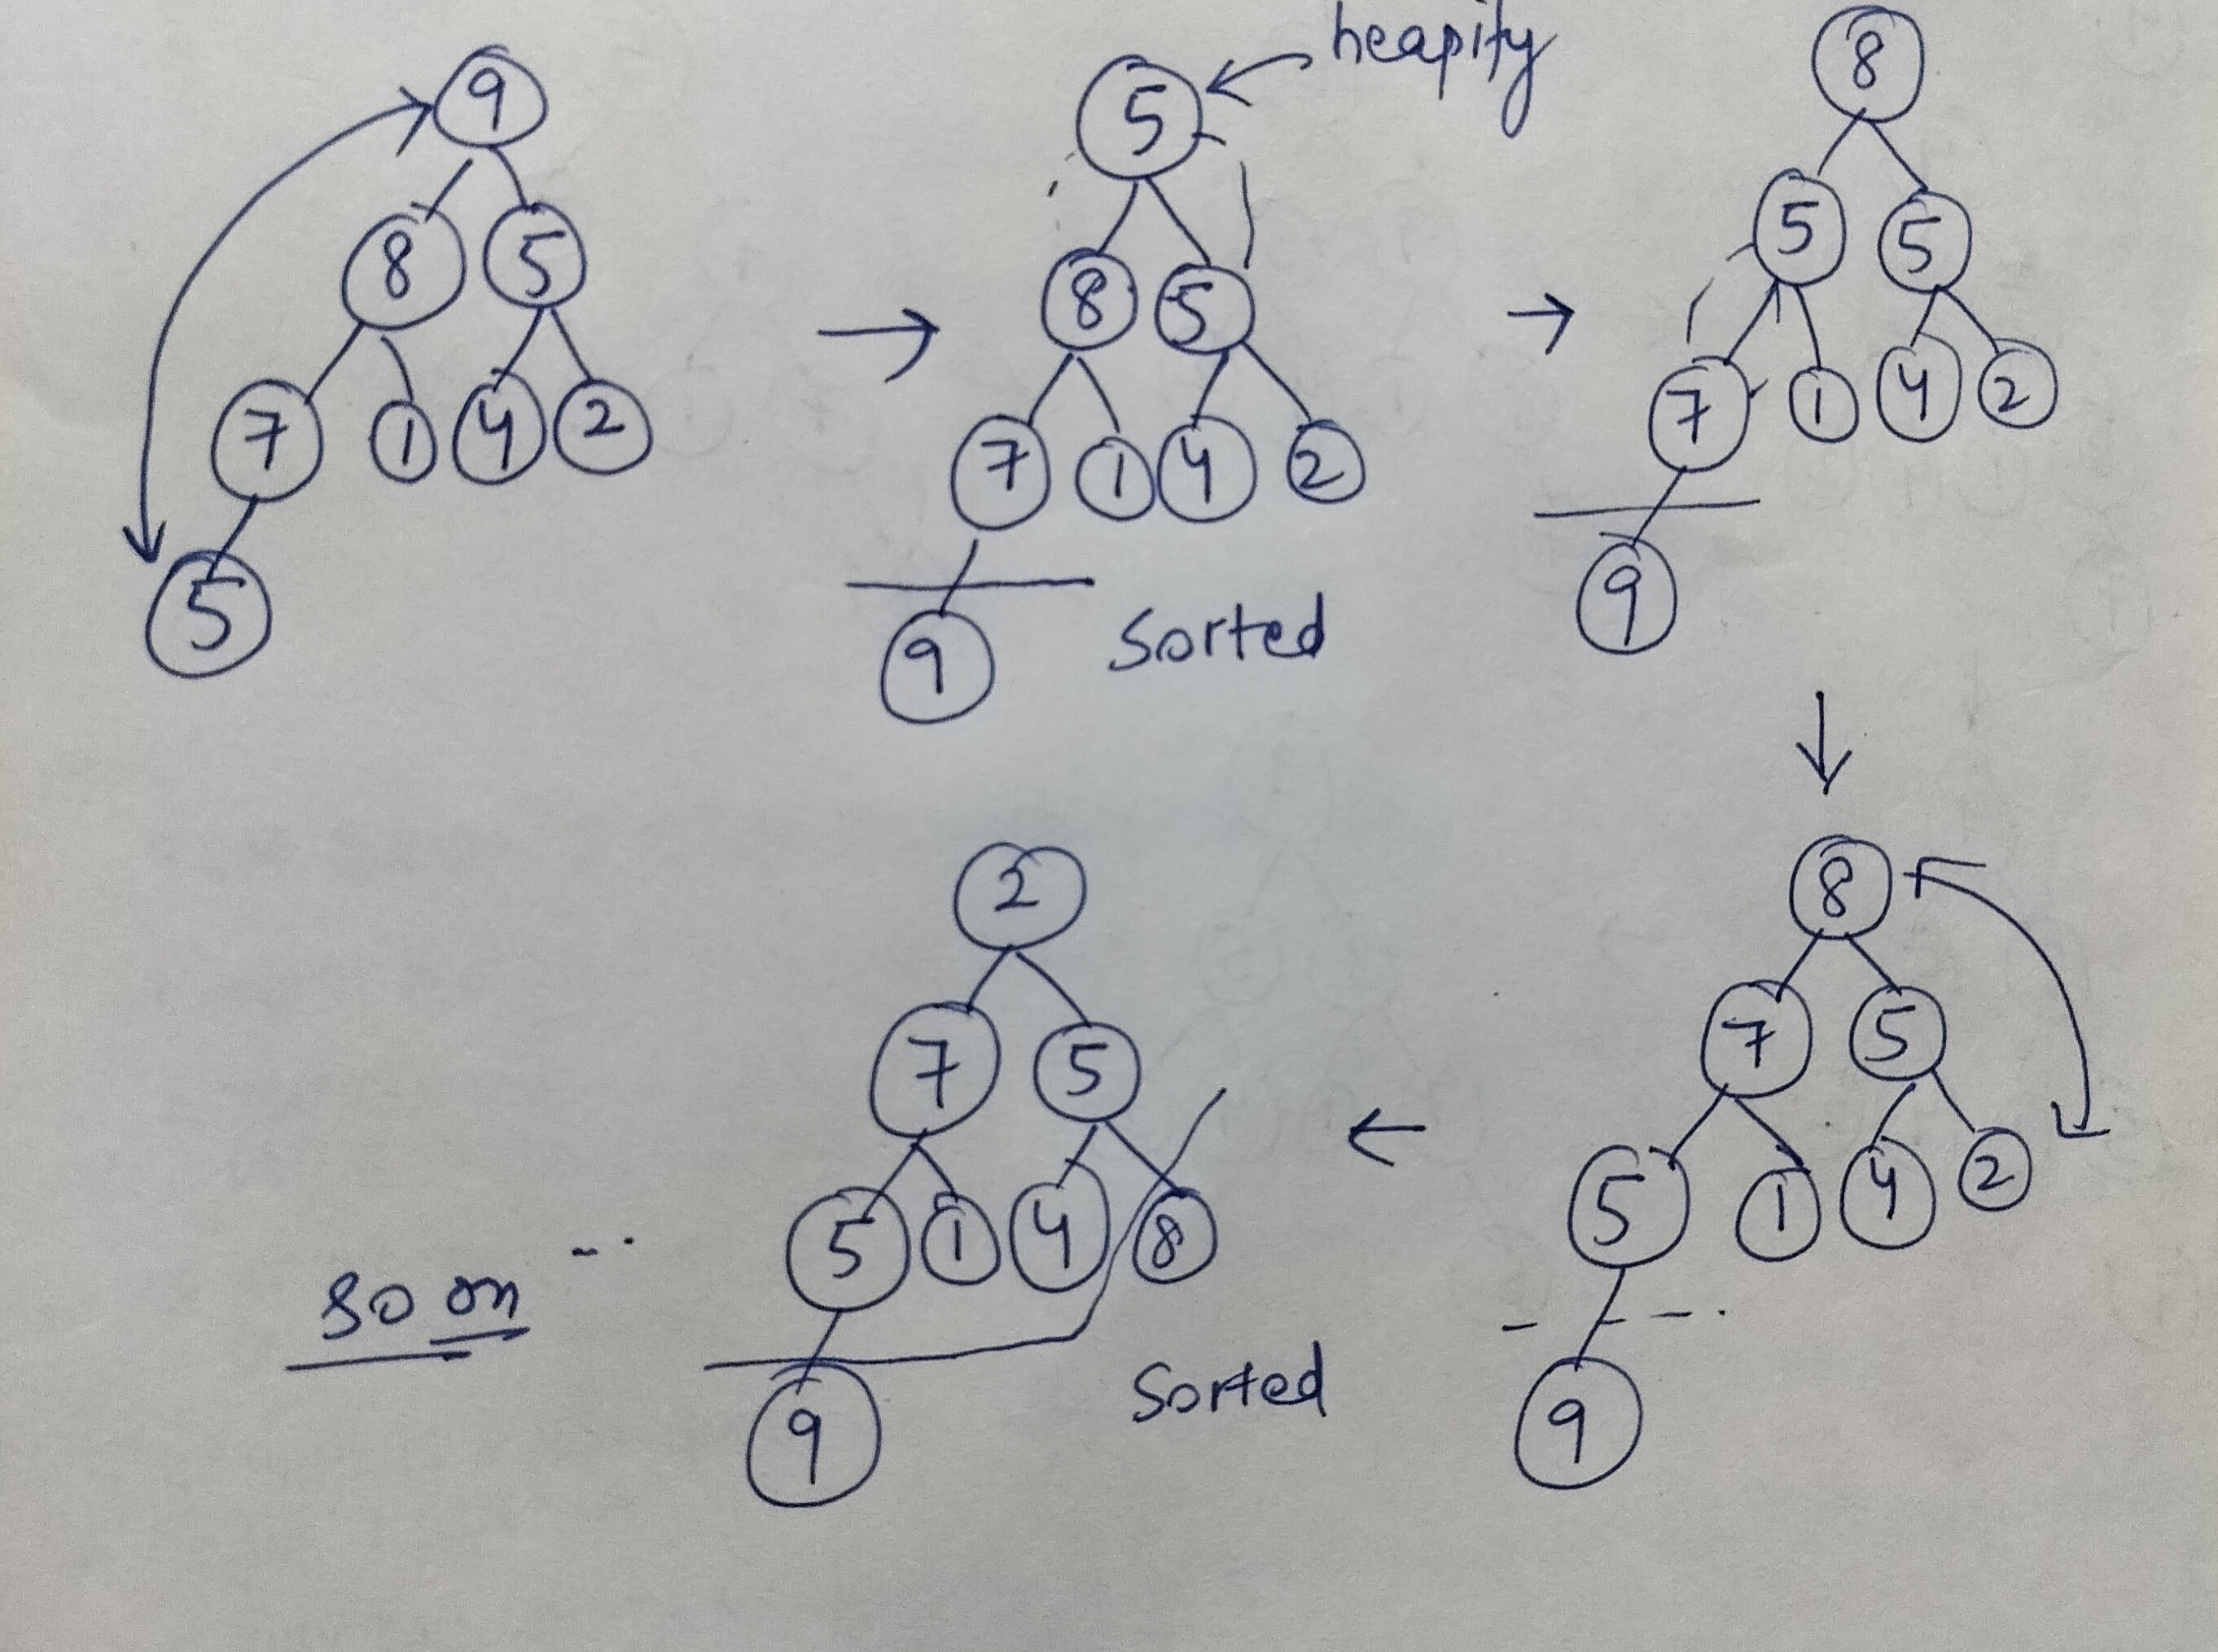 9
8 5
7 1 4 2
5
heapify
5
8 5
7 1 4 2
9 Sorted
8
5 5
7 1 4 2
9
8
7 5
5 1 4 2
9
2
7 5
5 1 4 8
9 Sorted
so on